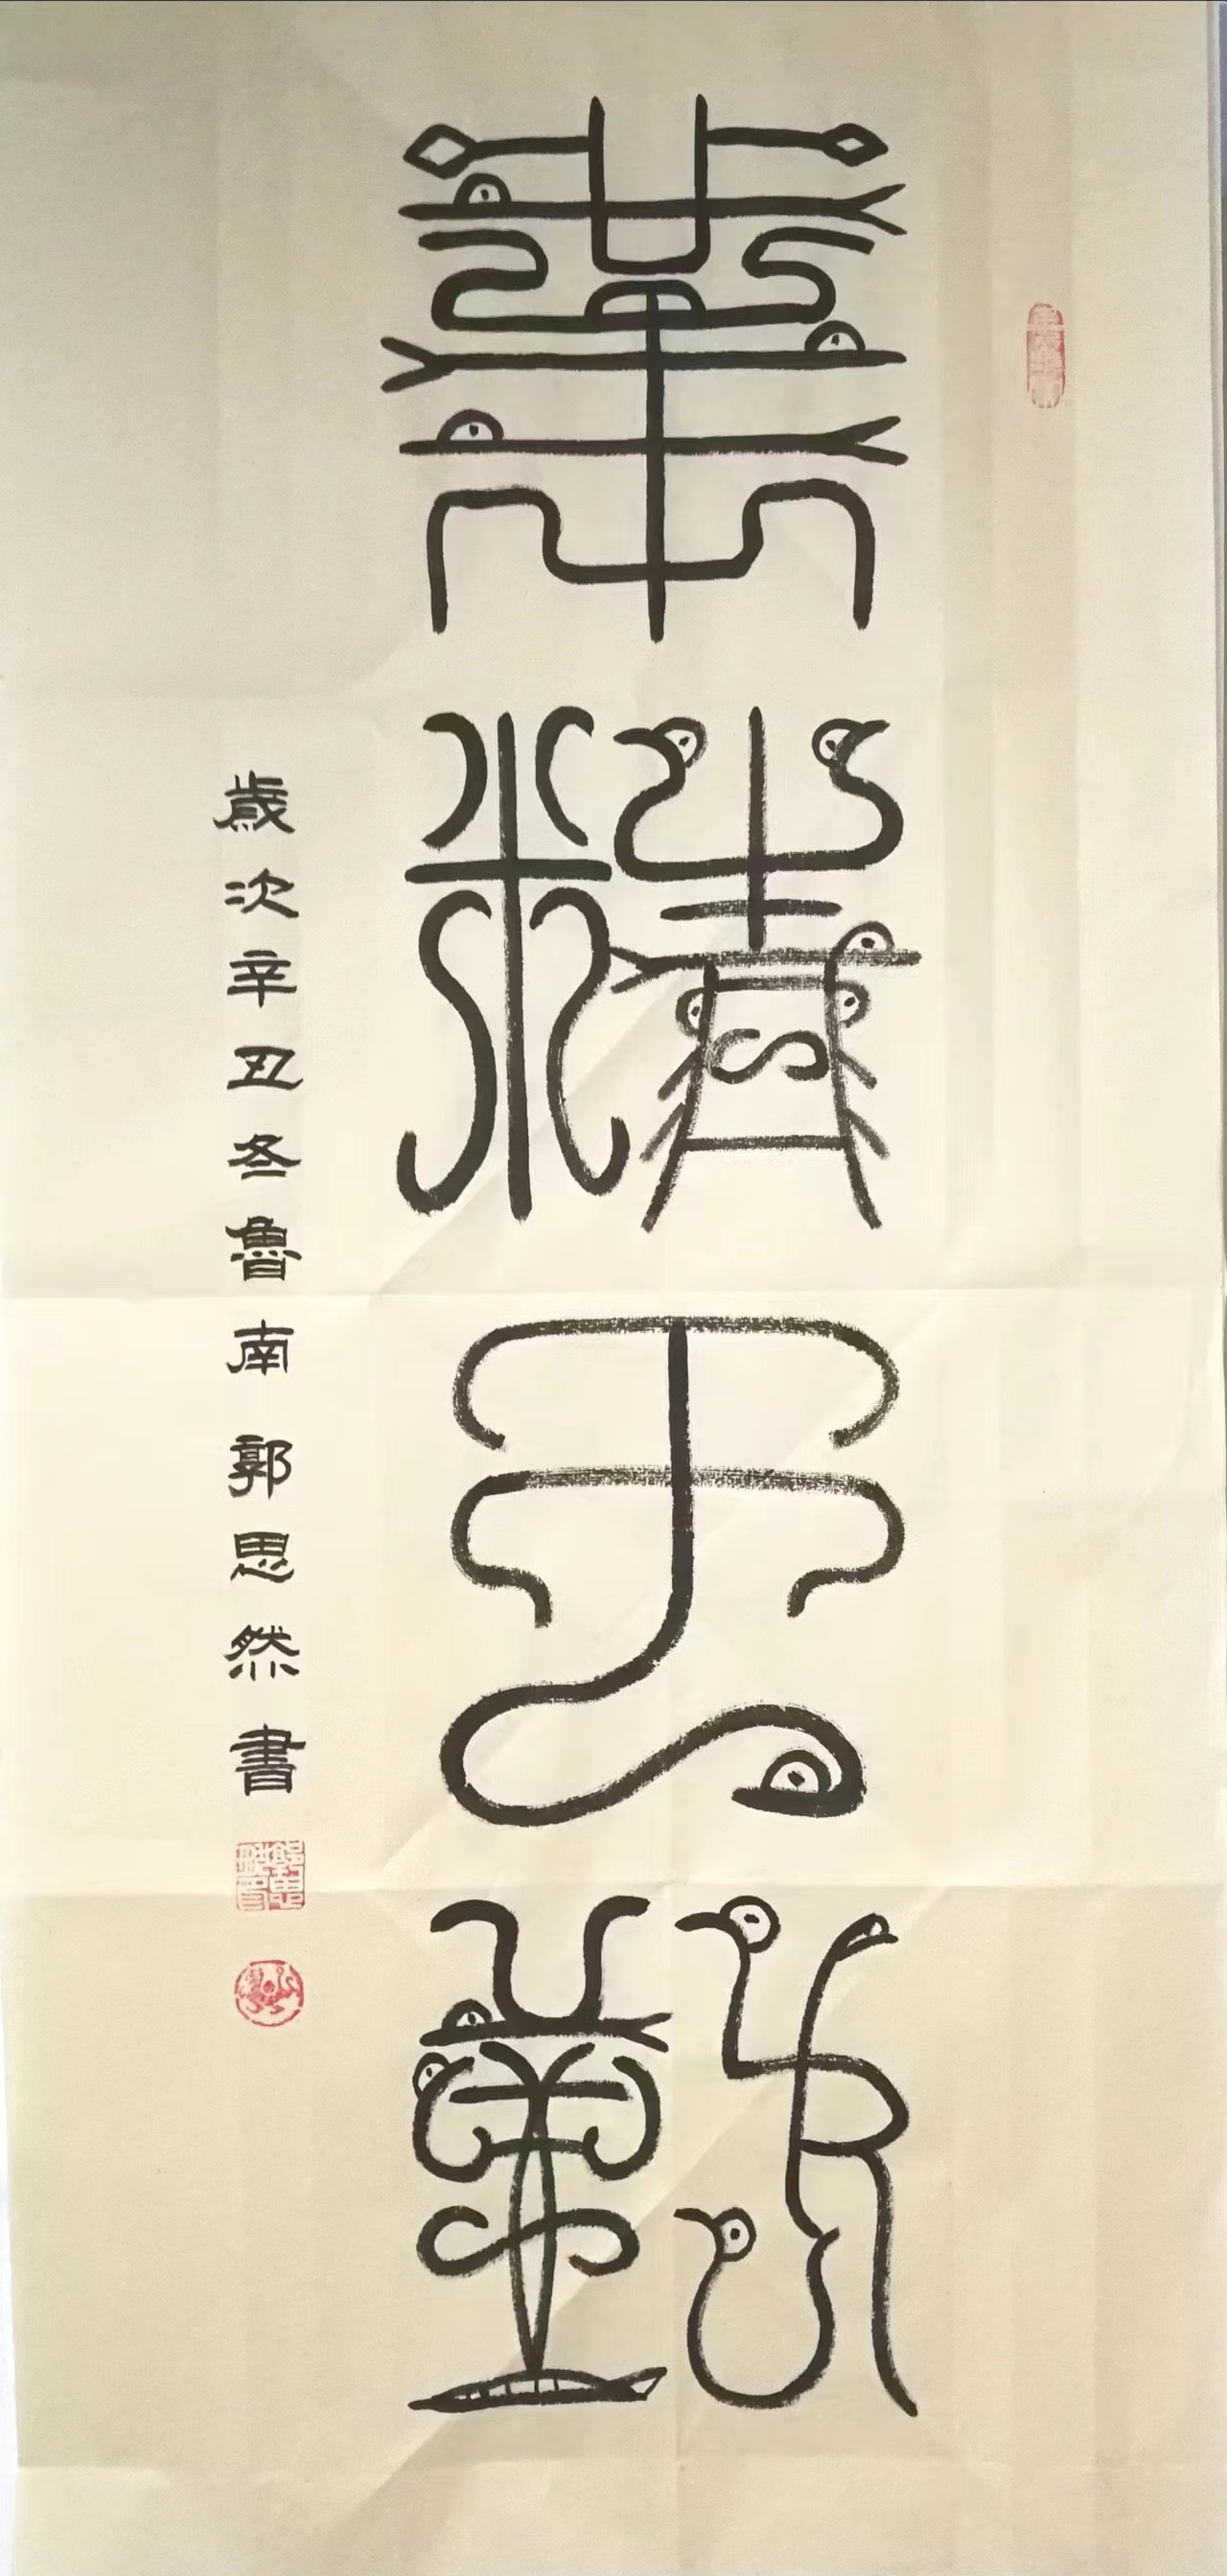 業精于勤
歲次辛丑冬魯南郭思然書